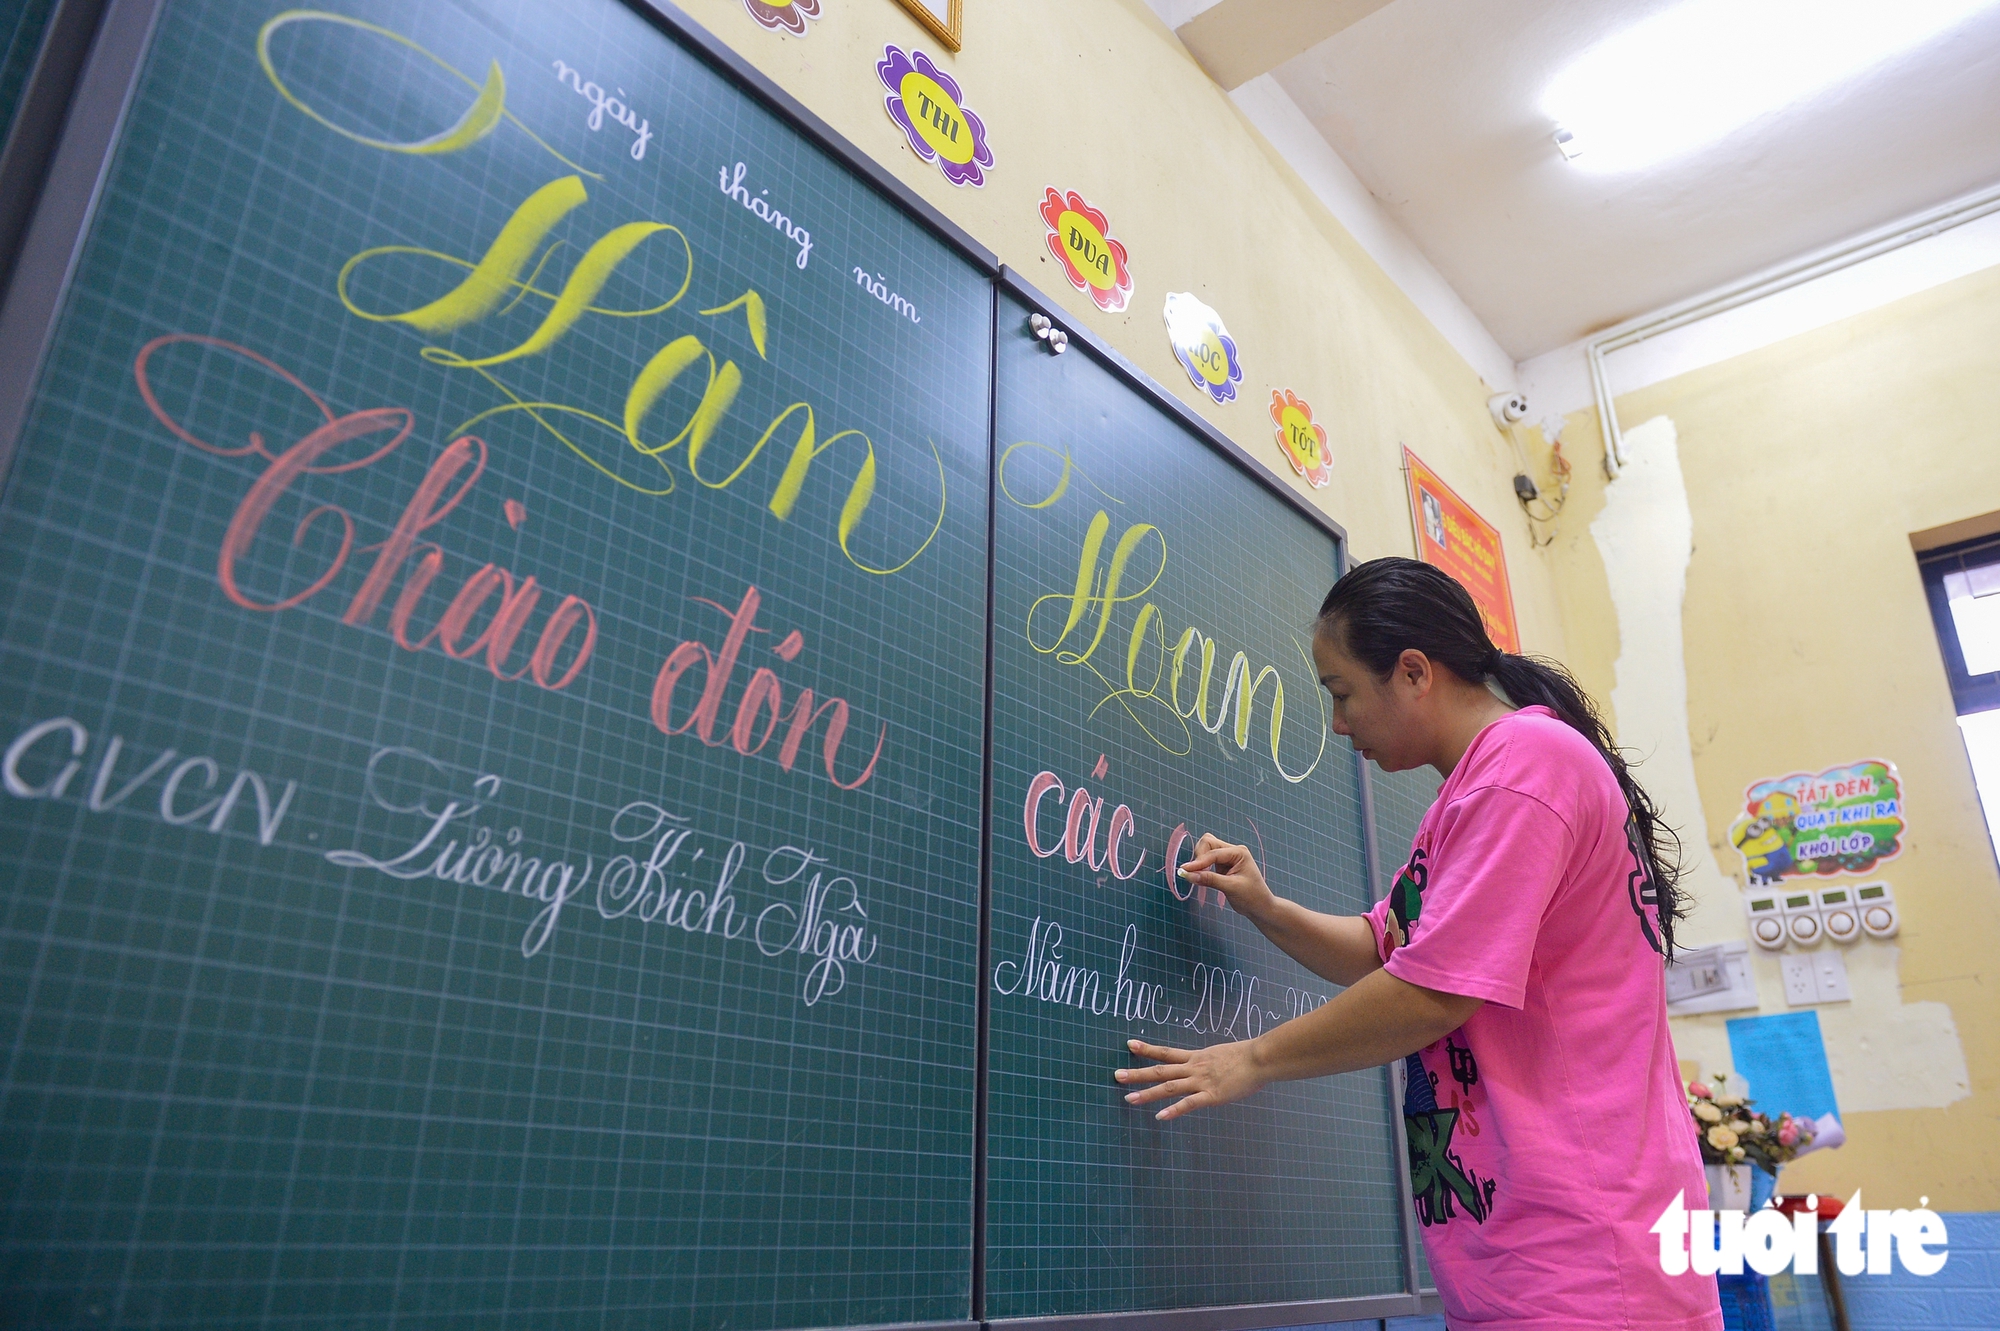 ngày tháng năm
Hân Hoan
Chào đón các
GVCN. Lưởng Bích Ngà
Năm học: 2026~
THI
ĐUA
HỌC
TỐT
5 ĐIỀU BÁC HỒ DẠY
TẮT ĐÈN,
QUẠT KHI RA
KHỎI LỚP
tuổi trẻ